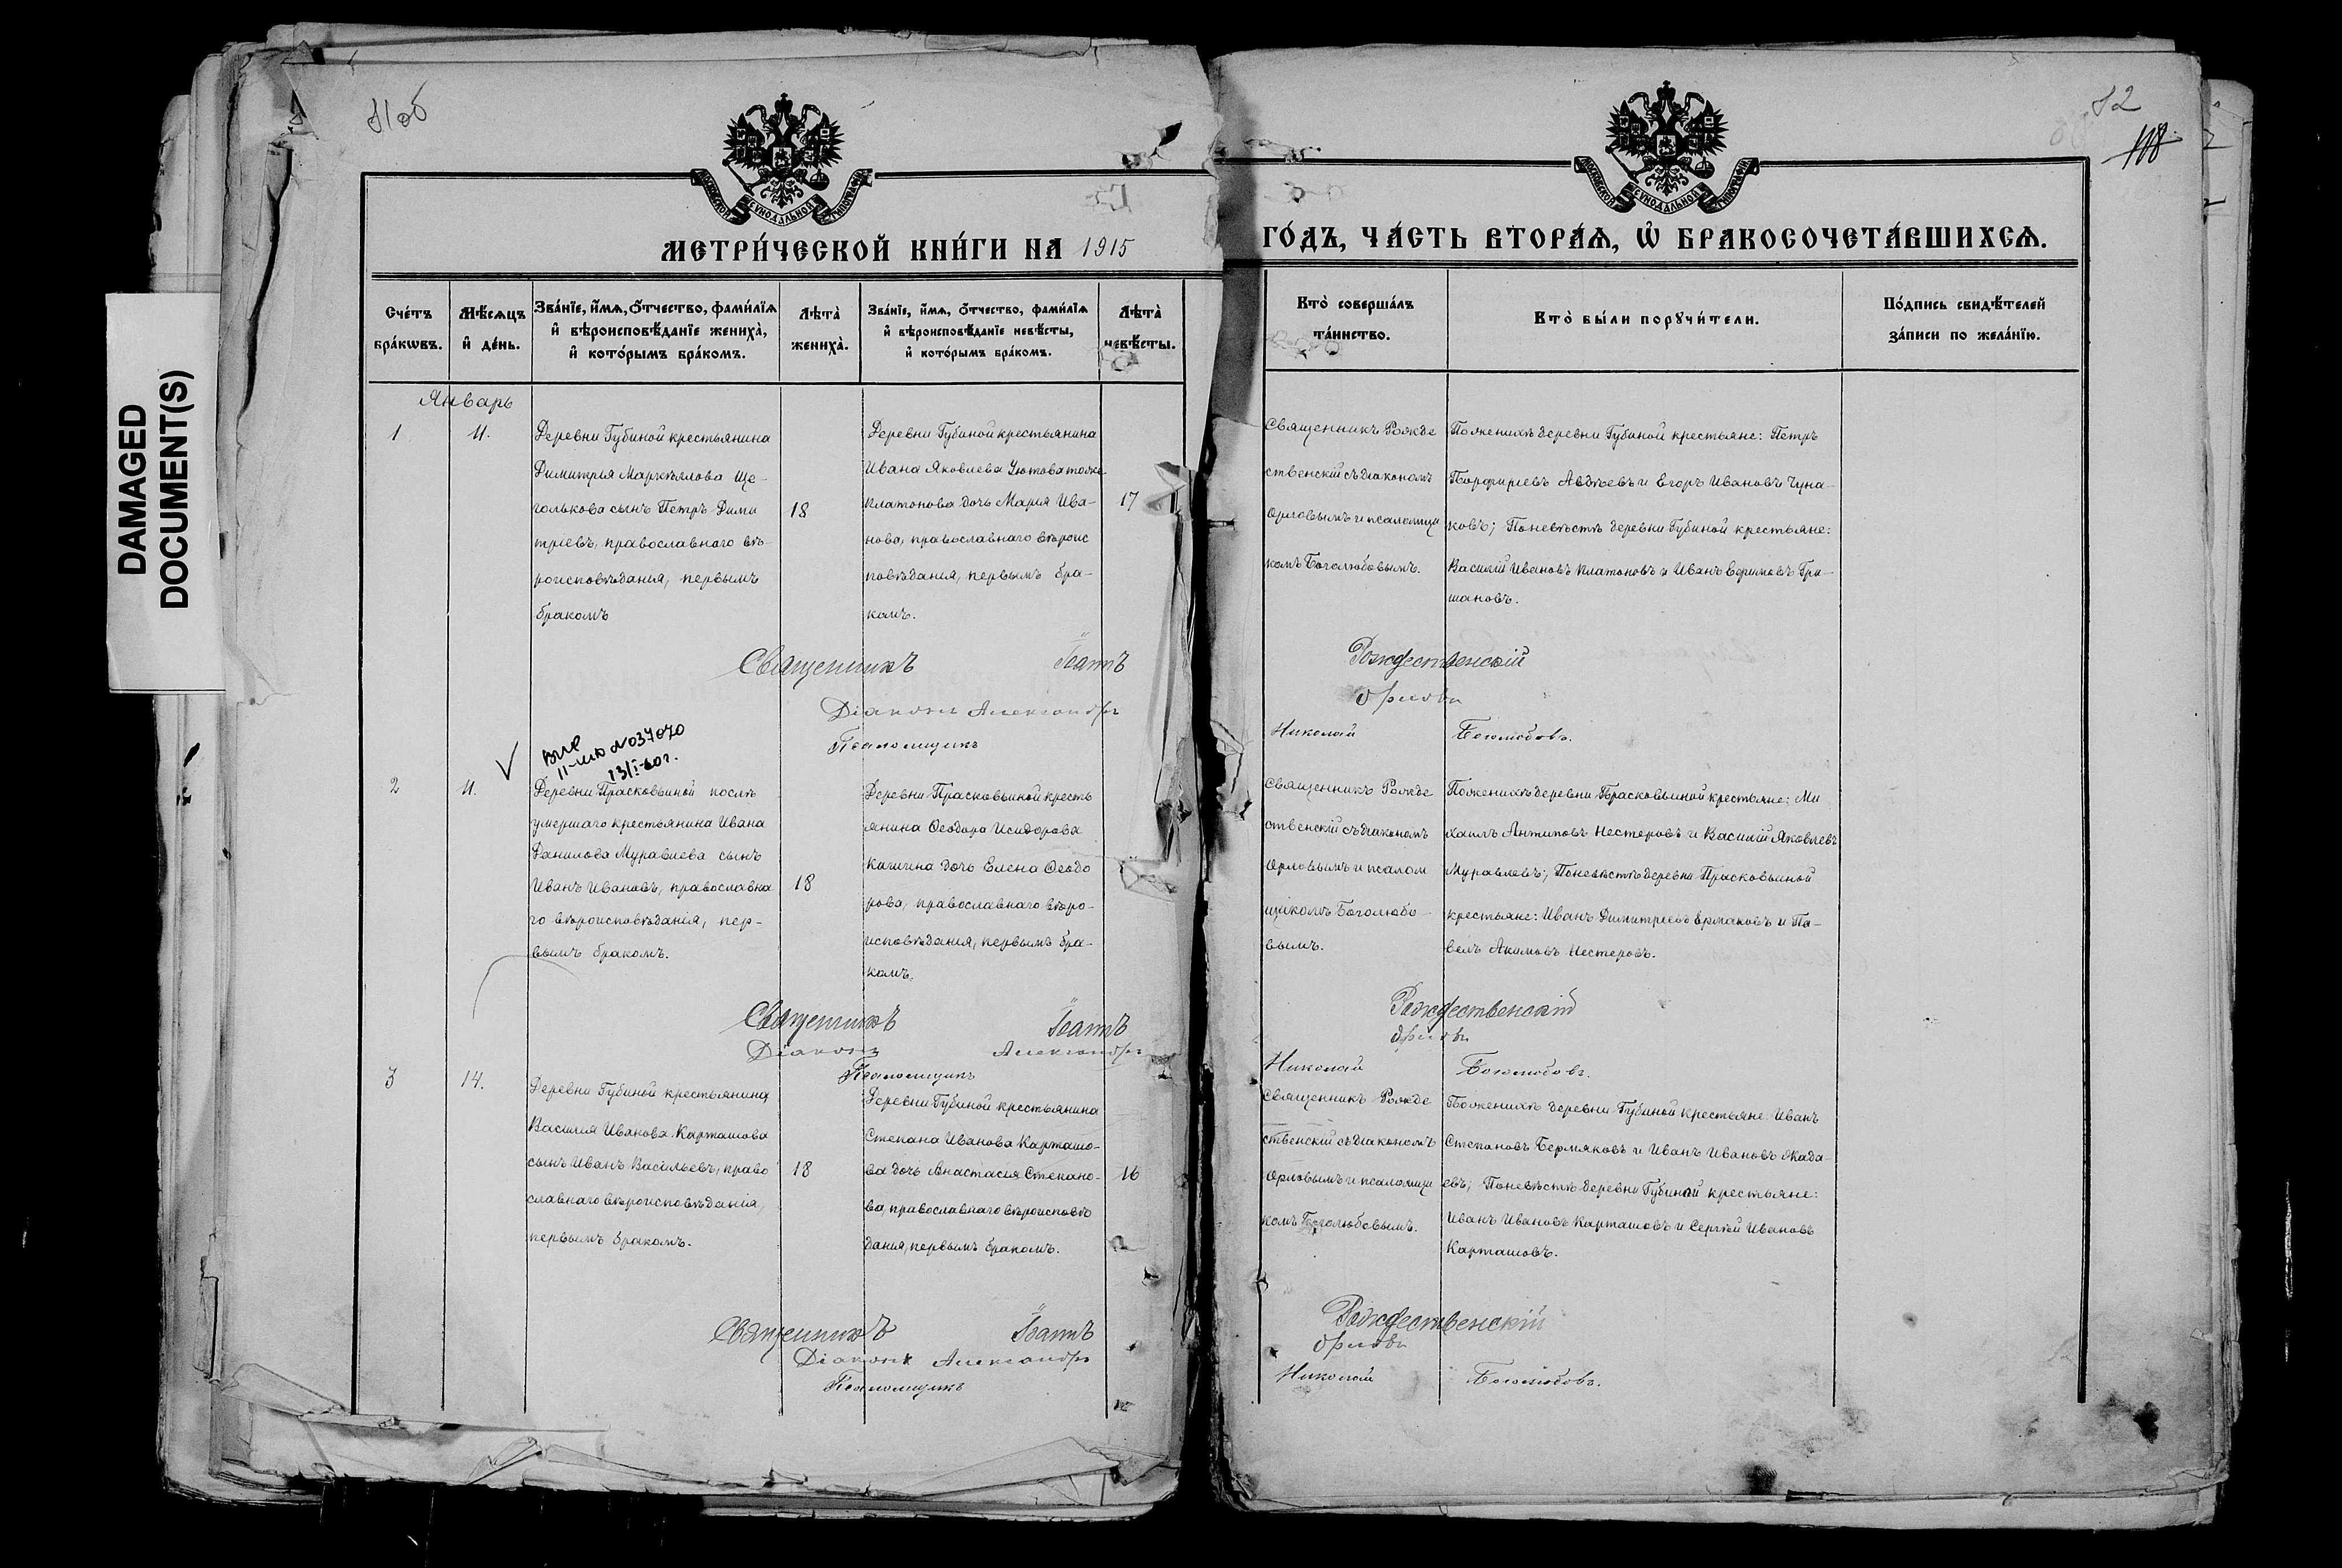 DAMAGED
DOCUMENT(S)
81 об
82
118
МОСКОВСКОЙ СѴНОДАЛЬНОЙ ТИПОГРАФІИ
МОСКОВСКОЙ СѴНОДАЛЬНОЙ ТИПОГРАФІИ
МЕТРИ́ЧЕСКОЙ КНИ́ГИ НА 1915 ГО́ДЪ, ЧА́СТЬ ВТОРА́Ѧ, Ѽ БРАКОСОЧЕТА́ВШИХСѦ.
Сче́тъ
бра́кѡвъ.
Мѣ́сѧцъ
и҆ де́нь.
Зва́нїе, и҆́мѧ, ѻ҆́тчество, фами́лїѧ
и҆ вѣроисповѣ́данїе жениха̀,
и҆ кото́рымъ бра́комъ.
Лѣта̀
жениха̀.
Зва́нїе, и҆́мѧ, ѻ҆́тчество, фами́лїѧ
и҆ вѣроисповѣ́данїе невѣ́сты,
и҆ кото́рымъ бра́комъ.
Лѣта̀
невѣ́сты.
Кто̀ соверша́лъ
та́инство.
Кто̀ бы́ли порꙋчи́тели.
По́дпись свидѣ́телей
за́писи по жела́нїю.
Январь
1
11.
Деревни Губиной крестьянина
Димитрія Маркѣллова Ще-
голькова сынъ Петръ Дими
тріевъ, православнаго вѣ-
роисповѣданія, первымъ
бракомъ
18
Деревни Губиной крестьянина
Ивана Яковлева Уютова тоже
Платонова дочь Марія Ива-
нова, православнаго вѣроис
повѣданія, первымъ бра-
комъ.
17
Священникъ Рожде
ственскій съ діакономъ
Орловымъ и псаломщи
комъ Боголюбовымъ.
По женихѣ деревни Губиной крестьяне: Петръ
Порфирьевъ Авдѣевъ и Егоръ Ивановъ Чуна-
ковъ; По невѣстѣ деревни Губиной крестьяне:
Василій Ивановъ Платоновъ и Иванъ Ефимовъ Гри-
шановъ.
Священникъ Іоаннъ Рождественскій
Діаконъ Александръ Орловъ
Псаломщикъ Николай Боголюбовъ.
№ 037070
13/I-60г.
2
11.
Деревни Прасковьиной послѣ
умершаго крестьянина Ивана
Данилова Муравлева сынъ
Иванъ Ивановъ, православна
го вѣроисповѣданія, пер-
вымъ бракомъ.
18
Деревни Прасковьиной кресть
янина Ѳеодора Исидорова
Кашина дочь Елена Ѳеодо
рова, православнаго вѣро-
исповѣданія, первымъ бра-
комъ.
Священникъ Рожде
ственскій съ діакономъ
Орловымъ и псалом
щикомъ Боголюбо-
вымъ.
По женихѣ деревни Прасковьиной крестьяне: Ми
хаилъ Антиповъ Нестеровъ и Василій Яковлевъ
Муравлевъ; По невѣстѣ деревни Прасковьиной
крестьяне: Иванъ Димитріевъ Ермаковъ и Па-
велъ Акимовъ Нестеровъ.
Священникъ Іоаннъ Рождественскій
Діаконъ Александръ Орловъ
Псаломщикъ Николай Боголюбовъ.
3
14.
Деревни Губиной крестьянина
Василія Иванова Карташова
сынъ Иванъ Васильевъ, право
славнаго вѣроисповѣданія,
первымъ бракомъ.
18
Деревни Губиной крестьянина
Степана Иванова Карташо-
ва дочь Анастасія Степано-
ва, православнаго вѣроисповѣ
данія, первымъ бракомъ.
16
Священникъ Рожде
ственскій съ діакономъ
Орловымъ и псаломщи
комъ Боголюбовымъ.
По женихѣ деревни Губиной крестьяне: Иванъ
Степановъ Бермяковъ и Иванъ Ивановъ Жада-
евъ; По невѣстѣ деревни Губиной крестьяне:
Иванъ Ивановъ Карташовъ и Сергѣй Ивановъ
Карташовъ.
Священникъ Іоаннъ Рождественскій
Діаконъ Александръ Орловъ
Псаломщикъ Николай Боголюбовъ.